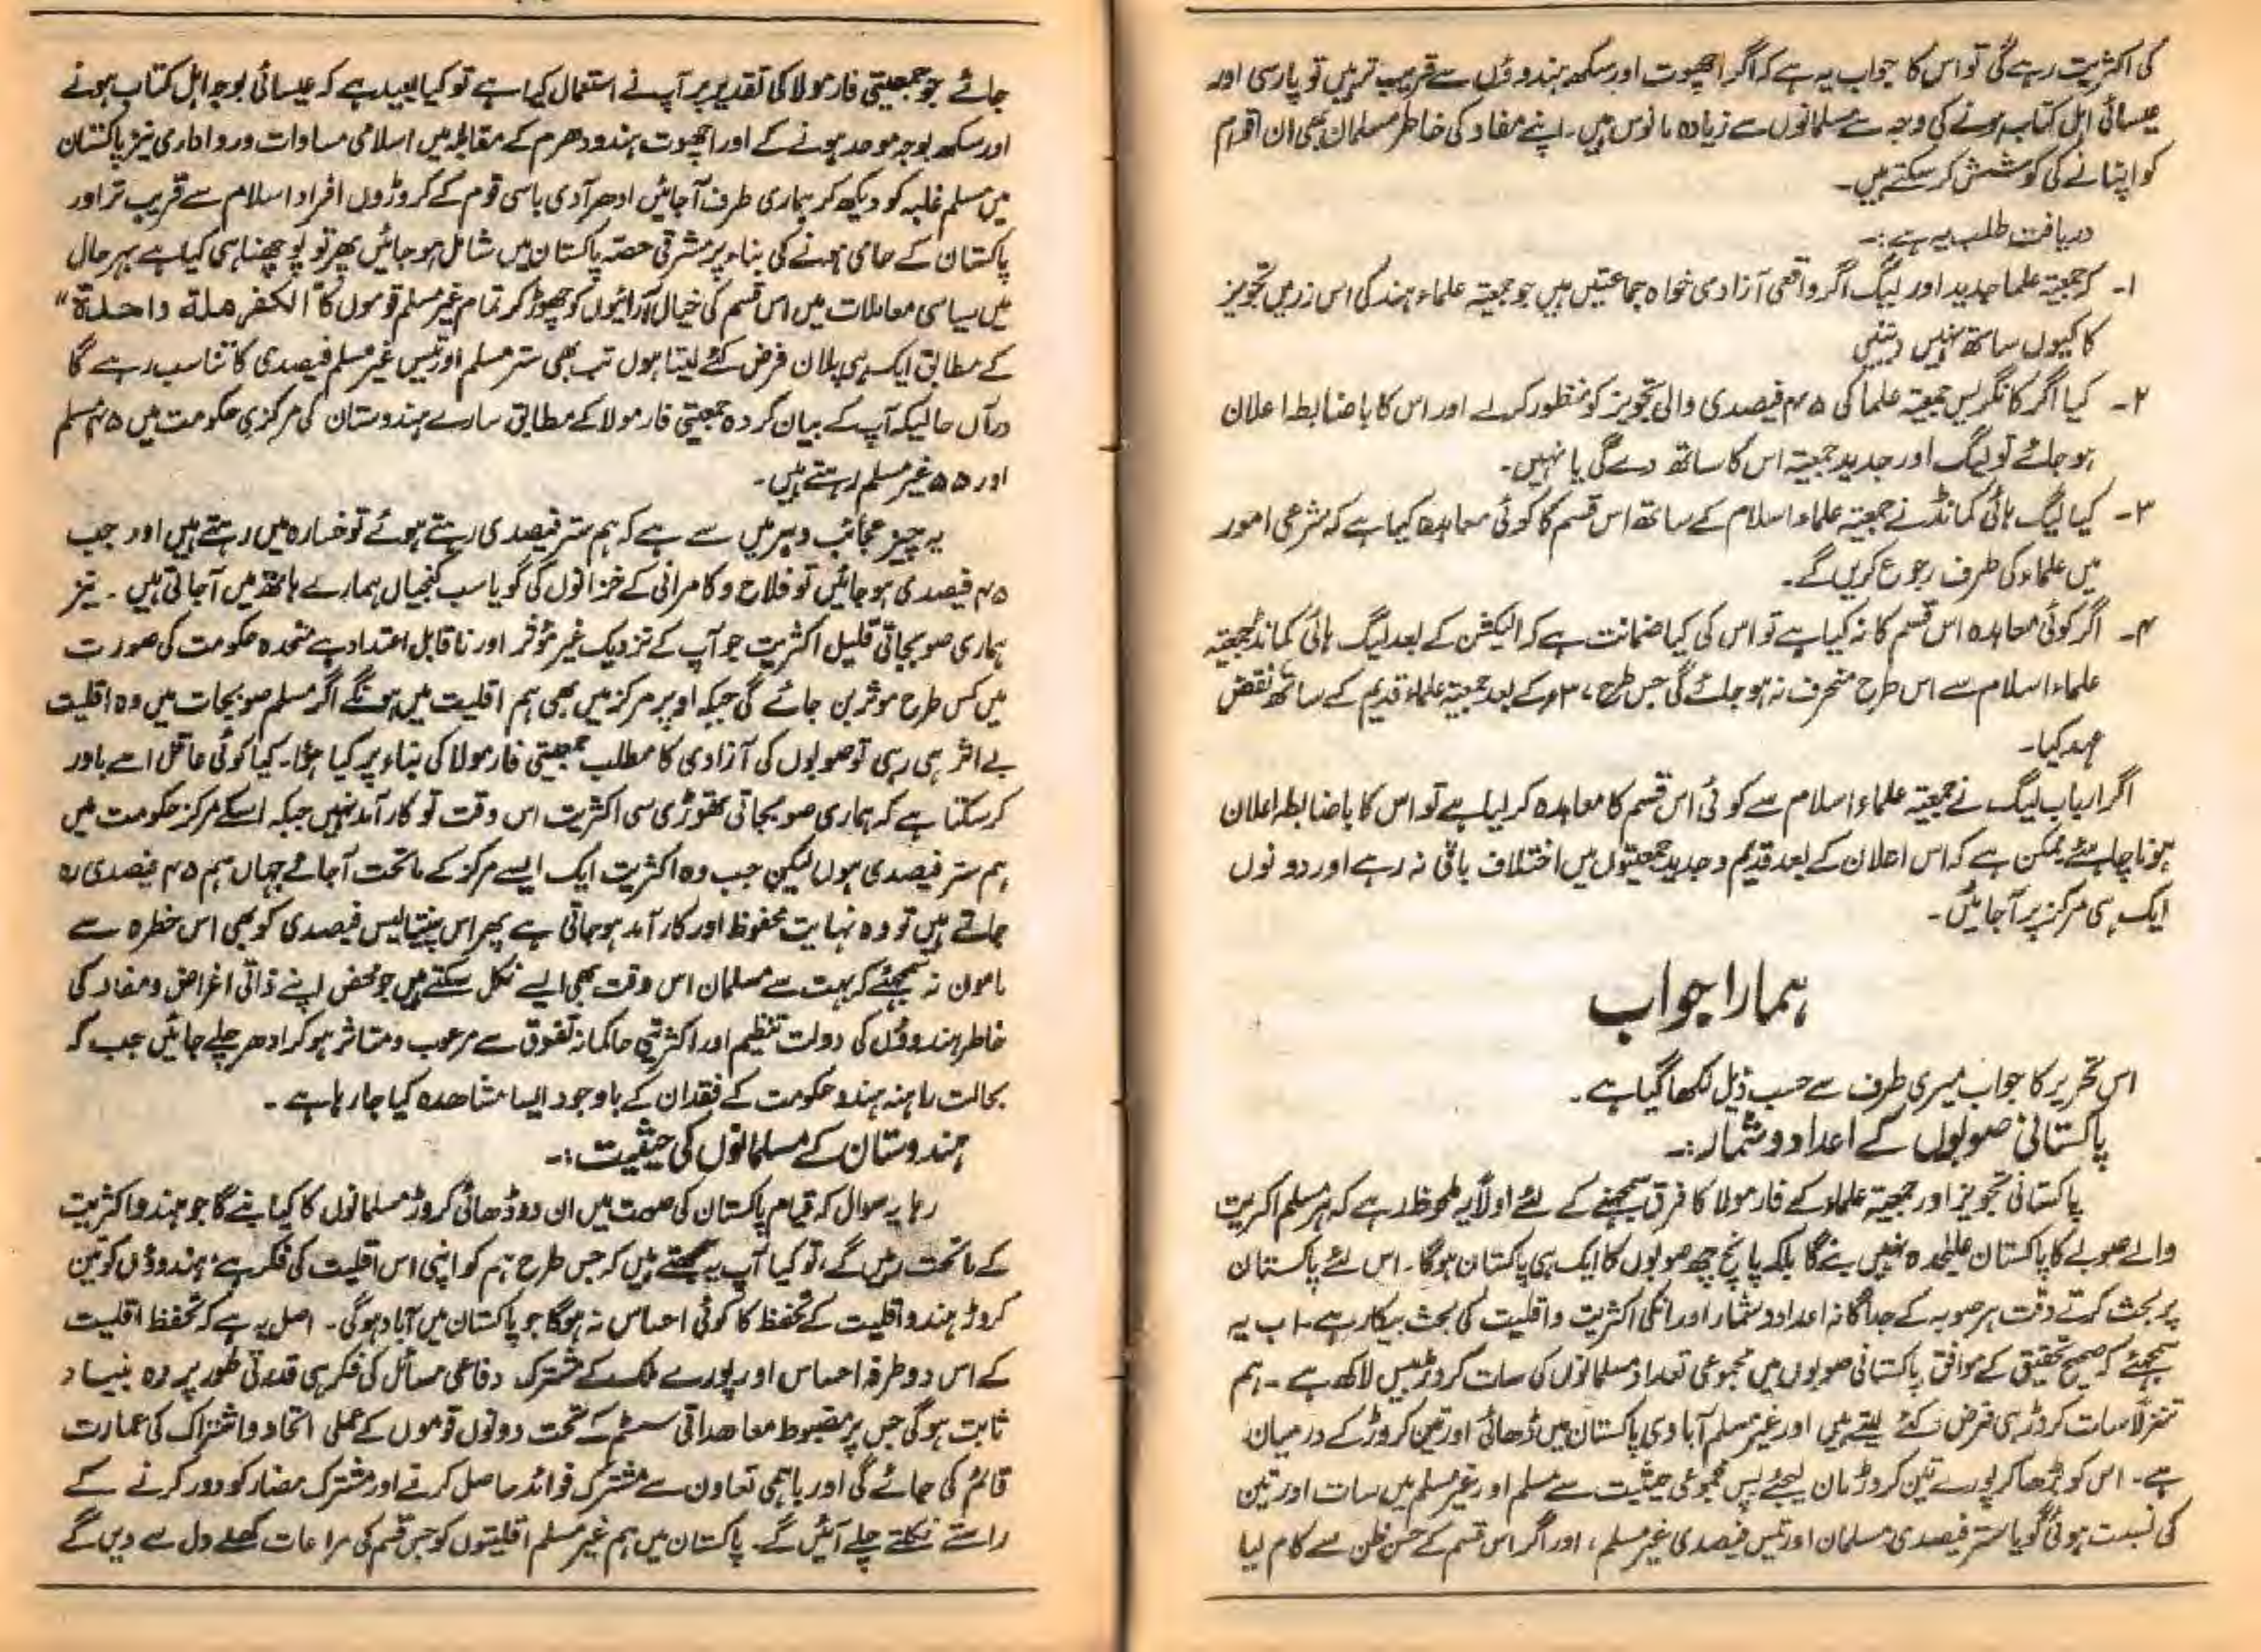 کی اکثریت رہے گی تو اس کا جواب یہ ہے کہ اگر اچھوت اور سکھ ہندوؤں سے قریب تر ہیں تو پارسی اور
عیسائی اہل کتاب ہونے کی وجہ سے مسلمانوں سے زیادہ مانوس ہیں۔ اپنے مفاد کی خاطر مسلمان بھی ان اقوام
کو اپنانے کی کوشش کر سکتے ہیں۔
دریافت طلب یہ ہے:۔
۱۔ کہ جمعیۃ علما جدید اور لیگ اگر واقعی آزادی خواہ جماعتیں ہیں جو جمعیۃ علماء ہند کی اس زریں تجویز
کا کیوں ساتھ نہیں دیتیں
۲۔ کیا اگر کانگریس جمعیۃ علما کی ۴۵ فیصدی والی تجویز کو منظور کر لے اور اس کا باضابطہ اعلان
ہو جائے تو لیگ اور جدید جمعیۃ اس کا ساتھ دے گی یا نہیں۔
۳۔ کیا لیگ ہائی کمانڈ نے جمعیۃ علماء اسلام کے ساتھ اس قسم کا کوئی معاہدہ کیا ہے کہ شرعی امور
میں علماء کی طرف رجوع کریں گے۔
۴۔ اگر کوئی معاہدہ اس قسم کا نہ کیا ہے تو اس کی کیا ضمانت ہے کہ الیکشن کے بعد لیگ ہائی کمانڈ جمعیۃ
علماء اسلام سے اس طرح منحرف نہ ہو جائے گی جس طرح ۳۷ء کے بعد جمعیۃ علماء قدیم کے ساتھ نقض
عہد کیا۔
اگر ارباب لیگ نے جمعیۃ علماء اسلام سے کوئی اس قسم کا معاہدہ کر لیا ہے تو اس کا باضابطہ اعلان
ہونا چاہئے ممکن ہے کہ اس اعلان کے بعد قدیم و جدید جمعیتوں میں اختلاف باقی نہ رہے اور دونوں
ایک ہی مرکز پر آجائیں۔
ہمارا جواب
اس تحریر کا جواب میری طرف سے حسب ذیل لکھا گیا ہے۔
پاکستانی صوبوں کے اعداد و شمار:۔
پاکستانی تجویز اور جمعیۃ علماء کے فارمولا کا فرق سمجھنے کے لئے اولاً یہ ملحوظ رہے کہ ہر مسلم اکثریت
والے صوبے کا پاکستان علیٰحدہ نہیں بنے گا بلکہ پانچ چھ صوبوں کا ایک ہی پاکستان ہوگا۔ اس لئے پاکستان
پر بحث کرتے وقت ہر صوبہ کے جداگانہ اعداد و شمار اور انکی اکثریت و اقلیت کی بحث بیکار ہے۔ اب یہ
سمجھئے کہ صحیح تحقیق کے موافق پاکستانی صوبوں میں مجموعی تعداد مسلمانوں کی سات کروڑ بیس لاکھ ہے۔ ہم
تنزلاً سات کروڑ ہی فرض کئے لیتے ہیں اور غیر مسلم آبادی پاکستان میں ڈھائی اور تین کروڑ کے درمیان
ہے۔ اس کو بڑھا کر پورے تین کروڑ مان لیجئے پس مجموعی حیثیت سے مسلم اور غیر مسلم میں سات اور تین
کی نسبت ہوئی گویا ستر فیصدی مسلمان اور تیس فیصدی غیر مسلم، اور اگر اس قسم کے حسن ظن سے کام لیا
جائے جو جمعیتی فارمولا کی تقدیر پر آپ نے استعمال کیا ہے تو کیا بعید ہے کہ عیسائی بوجہ اہل کتاب ہونے
اور سکھ بوجہ موحد ہونے کے اور اچھوت ہندو دھرم کے مقابلہ میں اسلامی مساوات و رواداری نیز پاکستان
میں مسلم غلبہ کو دیکھ کر ہماری طرف آجائیں ادھر آدی باسی قوم کے کروڑوں افراد اسلام سے قریب تر اور
پاکستان کے حامی ہونے کی بناء پر مشرقی حصہ پاکستان میں شامل ہو جائیں پھر تو پوچھنا ہی کیا ہے بہر حال
میں سیاسی معاملات میں اس قسم کی خیال آرائیوں کو چھوڑ کر تمام غیر مسلم قوموں کا "الکفر ملۃ واحدۃ"
کے مطابق ایک ہی پلان فرض کئے لیتا ہوں تب بھی ستر مسلم اور تیس غیر مسلم فیصدی کا تناسب رہے گا
درآں حالیکہ آپ کے بیان کردہ جمعیتی فارمولا کے مطابق سارے ہندوستان کی مرکزی حکومت میں ۴۵ مسلم
اور ۵۵ غیر مسلم رہتے ہیں۔
یہ چیز عجائب دہر میں سے ہے کہ ہم ستر فیصدی رہتے ہوئے تو خسارہ میں رہتے ہیں اور جب
۴۵ فیصدی ہو جائیں تو فلاح و کامرانی کے خزانوں کی گویا سب کنجیاں ہمارے ہاتھ میں آجاتی ہیں۔ نیز
ہماری صوبجاتی قلیل اکثریت جو آپ کے نزدیک غیر مؤثر اور ناقابل اعتداد ہے متحدہ حکومت کی صورت
میں کس طرح موثر بن جائے گی جبکہ اوپر مرکز میں بھی ہم اقلیت میں ہونگے اگر مسلم صوبجات میں وہ اقلیت
بے اثر ہی رہی تو صوبوں کی آزادی کا مطلب جمعیتی فارمولا کی بناء پر کیا ہوا۔ کیا کوئی عاقل اسے باور
کر سکتا ہے کہ ہماری صوبجاتی تھوڑی سی اکثریت اس وقت تو کارآمد نہیں جبکہ اسکے مرکز حکومت میں
ہم ستر فیصدی ہوں لیکن جب وہ اکثریت ایک ایسے مرکز کے ماتحت آجائے جہاں ہم ۴۵ فیصدی رہ
جاتے ہیں تو وہ نہایت محفوظ اور کارآمد ہو جاتی ہے پھر اس پینتالیس فیصدی کو بھی اس خطرہ سے
مامون نہ سمجھئے کہ بہت سے مسلمان اس وقت بھی ایسے نکل سکتے ہیں جو محض اپنے ذاتی اغراض و مفاد کی
خاطر ہندوؤں کی دولت تنظیم اور اکثریتی حاکمانہ تفوق سے مرعوب و متاثر ہو کر ادھر چلے جائیں جب کہ
بحالت راہنہ ہندو حکومت کے فقدان کے باوجود ایسا مشاھدہ کیا جا رہا ہے۔
ہندوستان کے مسلمانوں کی حیثیت:۔
رہا یہ سوال کہ قیام پاکستان کی صورت میں ان دو ڈھائی کروڑ مسلمانوں کا کیا بنے گا جو ہندو اکثریت
کے ماتحت رہیں گے، تو کیا آپ یہ سمجھتے ہیں کہ جس طرح ہم کو اپنی اس اقلیت کی فکر ہے، ہندوؤں کو تین
کروڑ ہندو اقلیت کے تحفظ کا کوئی احساس نہ ہوگا جو پاکستان میں آباد ہوگی۔ اصل یہ ہے کہ تحفظ اقلیت
کے اس دو طرفہ احساس اور پورے ملک کے مشترک دفاعی مسائل کی فکر ہی قدرتی طور پر وہ بنیاد
ثابت ہوگی جس پر مضبوط معاھداتی سسٹم کے تحت دونوں قوموں کے عملی اتحاد و اشتراک کی عمارت
قائم کی جائے گی اور باہمی تعاون سے مشترک فوائد حاصل کرنے اور مشترک مضار کو دور کرنے کے
راستے نکلتے چلے آئیں گے۔ پاکستان میں ہم غیر مسلم اقلیتوں کو جس قسم کی مراعات کھلے دل سے دیں گے